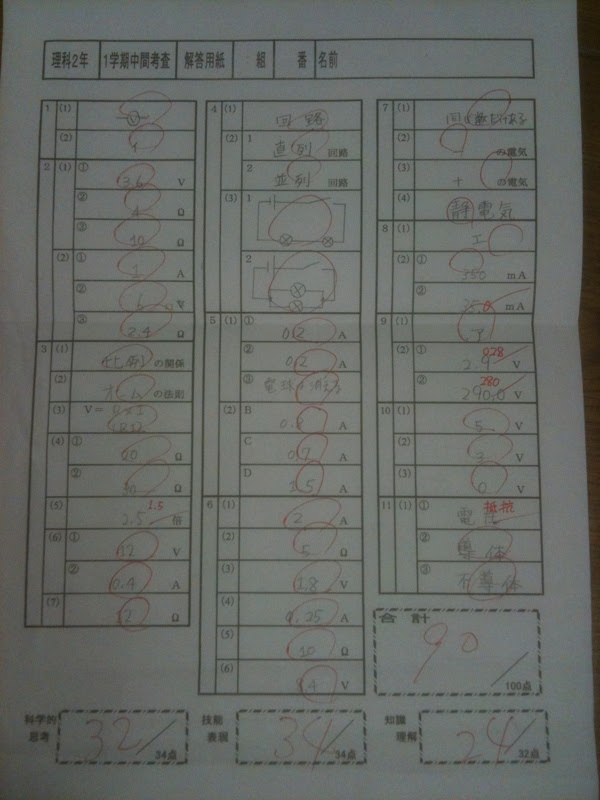 理科2年 1学期中間考査 解答用紙 組 番 名前
1 (1) V
(2) 1
2 (1) ① 3.6 V
② 4 Ω
③ 10 Ω
(2) ① 1 A
② 6 V
③ 2.4 Ω
3 (1) 比例 の関係
(2) オーム の法則
(3) V=
(4) ① 20 Ω
② 30 Ω
(5) 2.5 1.5 倍
(6) ① 12 V
② 0.4 A
(7) 12 Ω
4 (1) 回路
(2) 1 直列 回路
2 並列 回路
(3) 1
2
5 (1) ① 0.2 A
② 0.2 A
③ 電球が消える
(2) B 0.8 A
C 0.7 A
D 1.5 A
6 (1) 2 A
(2) 5 Ω
(3) 1.8 V
(4) 0.25 A
(5) 10 Ω
(6) V
7 (1)
(2) - の電気
(3) + の電気
(4) 静電気
8 (1) エ
(2) ① 350 mA
② mA
9 (1) ア
(2) ① 2.9 V
② 290.0 280 V
10 (1) 5 V
(2) 3 V
(3) 0 V
11 (1) ① 電圧 抵抗
② 導体
③ 不導体
合計
90
100点
科学的思考 32 34点
技能表現 34 34点
知識理解 24 32点